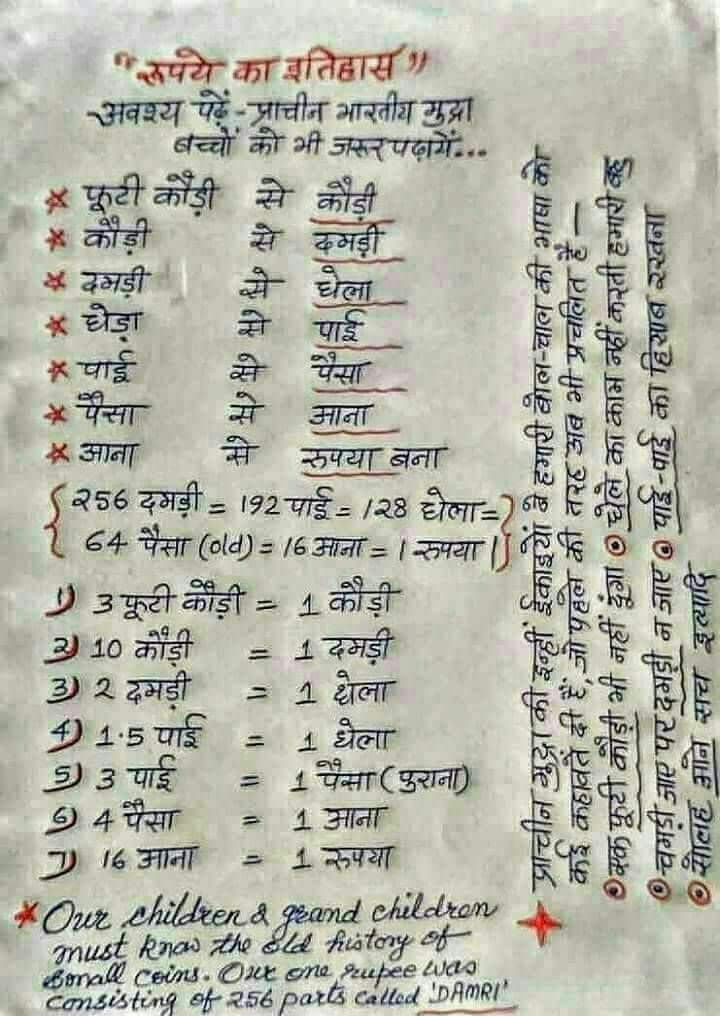 "रूपये का इतिहास"
अवश्य पढ़ें - प्राचीन भारतीय मुद्रा
बच्चों को भी जरूर पढायें...
* फूटी कौड़ी से कौड़ी
* कौड़ी से दमड़ी
* दमड़ी से धेला
* धेड़ा से पाई
* पाई से पैसा
* पैसा से आना
* आना से रुपया बना
{256 दमड़ी = 192 पाई = 128 धेला =
64 पैसा (old) = 16 आना = 1 रुपया।}
1) 3 फूटी कौड़ी = 1 कौड़ी
2) 10 कौड़ी = 1 दमड़ी
3) 2 दमड़ी = 1 धेला
4) 1.5 पाई = 1 धेला
5) 3 पाई = 1 पैसा (पुराना)
6) 4 पैसा = 1 आना
7) 16 आना = 1 रुपया
* Our children & grand children
must know the old history of
small coins. Our one rupee was
consisting of 256 parts called 'DAMRI'
प्राचीन मुद्रा की इन्हीं ईकाइयों ने हमारी बोल-चाल की भाषा को
कई कहावतें दी हैं, जो पहले की तरह अब भी प्रचलित हैं —
एक फूटी कौड़ी भी नहीं दूंगा धेले का काम नहीं करती हमारी बहु
चमड़ी जाए पर दमड़ी न जाए पाई-पाई का हिसाब रखना
सोलह आने सच इत्यादि